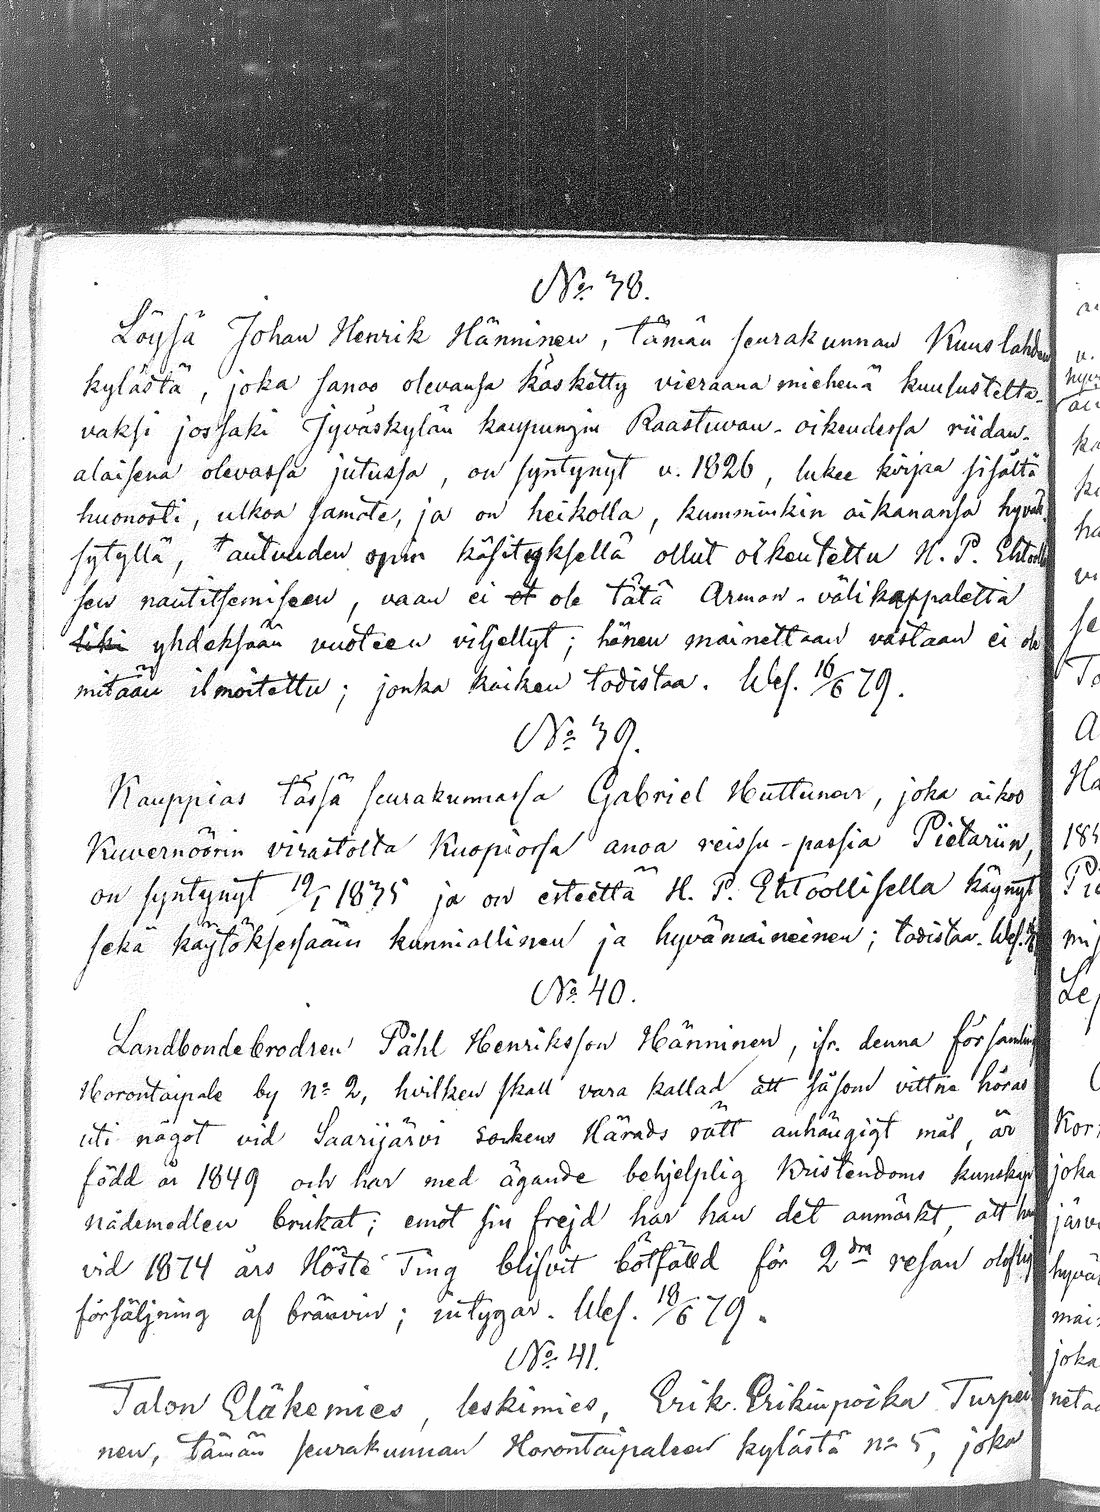 No 38.
Löysä Johan Henrik Hänninen, tämän seurakunnan Kuuslahden
kylästä, joka sanoo olevansa käsketty vieraana miehenä kuulustelta-
vaksi jossaki Jyväskylän kaupungin Raastuvan-oikeudessa riidan-
alaisena olevassa jutussa, on syntynyt v. 1826, lukee kirjaa sisältä
huonosti, ulkoa samote, ja on heikolla, kumminkin aikanansa hyväk-
sytyllä, autuuden opin käsityksellä ollut oikeutettu H. P. Ehtoolli
sen nautitsemiseen, vaan ei et ole tätä Armon-välikappaletta
liki yhdeksään vuoteen viljellyt; hänen mainettaan vastaan ei ole
mitään ilmoitettu; jonka kaiken todistaa. Wes. 16/6 79.
No 39.
Kauppias tässä seurakunnassa Gabriel Huttunen, joka aikoo
Kuvernöörin virastolta Kuopiossa anoa reissu-passia Pietariin,
on syntynyt 19/1 1835 ja on esteettä H. P. Ehtoollisella käynyt
sekä käytöksessään kunniallinen ja hyvämaineinen; todistaa. Wes.
No 40.
Landbondebrodren Påhl Henriksson Hänninen, ifr. denna församling
Horontaipale by no 2, hvilken skall vara kallad att såsom vittne höras
uti något vid Saarijärvi sockens Härads rätt anhängigt mål, är
född år 1849 och har med ägande behjelplig Kristendoms kunskap
nådemedlen brukat; emot sin frejd har han det anmärkt, att han
vid 1874 års Höste Ting blifvit bötfälld för 2dra resan oloflig
försäljning af bränvin; intygar. Wes. 18/6 79.
No 41.
Talon Eläkemies, leskimies, Erik Erikinpoika Turpei
nen, tämän seurakunnan Horontaipaleen kylästä no 5, joka